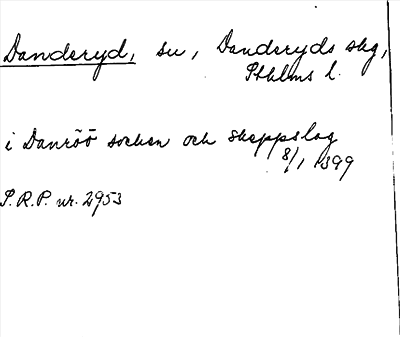 Danderyd, sn, Danderyds skg,
Sthlms l.
i Danröö sochen och skeppslag
8/1 1399
S.R.P. nr. 2953